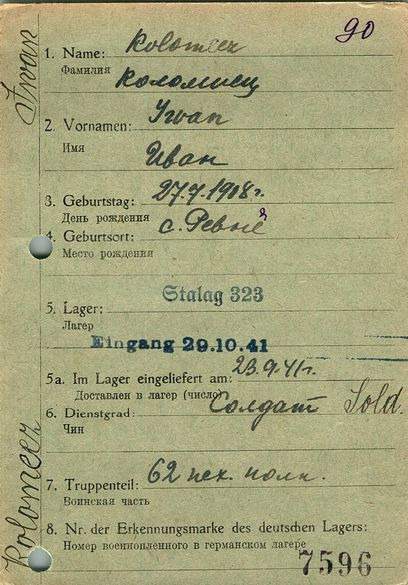 90
1. Name: Kolomeez
Фамилия Коломиец
2. Vornamen: Iwan
Имя Иван
3. Geburtstag: 27.7.1908 г.
День рождения
4. Geburtsort: с. Ревне
Место рождения
5. Lager: Stalag 323
Лагер
Eingang 29.10.41
5a. Im Lager eingeliefert am: 23.9.41 г.
Доставлен в лагер (число)
6. Dienstgrad: Солдат Sold.
Чин
7. Truppenteil: 62 пех. полк.
Воинская часть
8. Nr. der Erkennungsmarke des deutschen Lagers:
Номер военнопленного в германском лагере
7596
Kolomeez Iwan